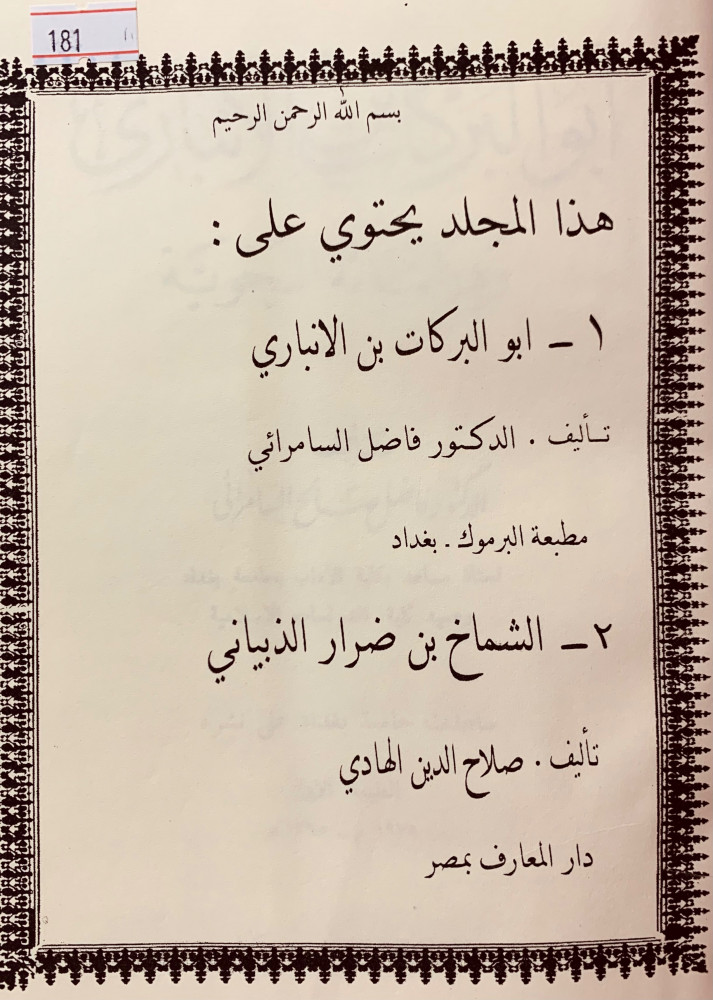 181
بسم الله الرحمن الرحيم
هذا المجلد يحتوي على :
١ – ابو البركات بن الانباري
تـأليف . الدكتور فاضل السامرائي
مطبعة اليرموك . بغداد
٢ – الشماخ بن ضرار الذبياني
تأليف . صلاح الدين الهادي
دار المعارف بمصر